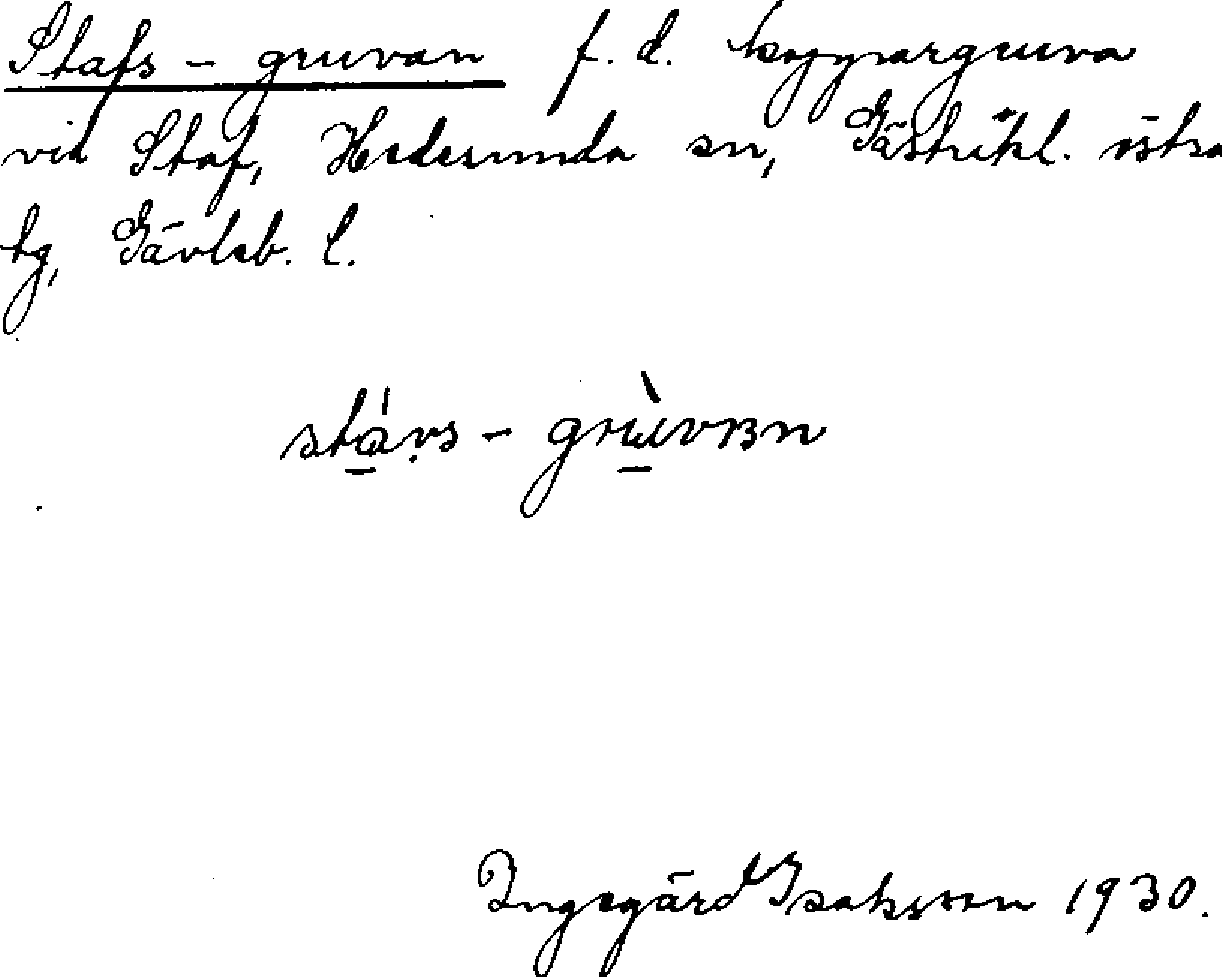 Stafs - gruvan f. d. koppargruva
vid Staf, Hedesunda sn, Gästrikl. östra
tg, Gävleb. l.
stavs - gruvan
Ingegärd Isaksson 1930.